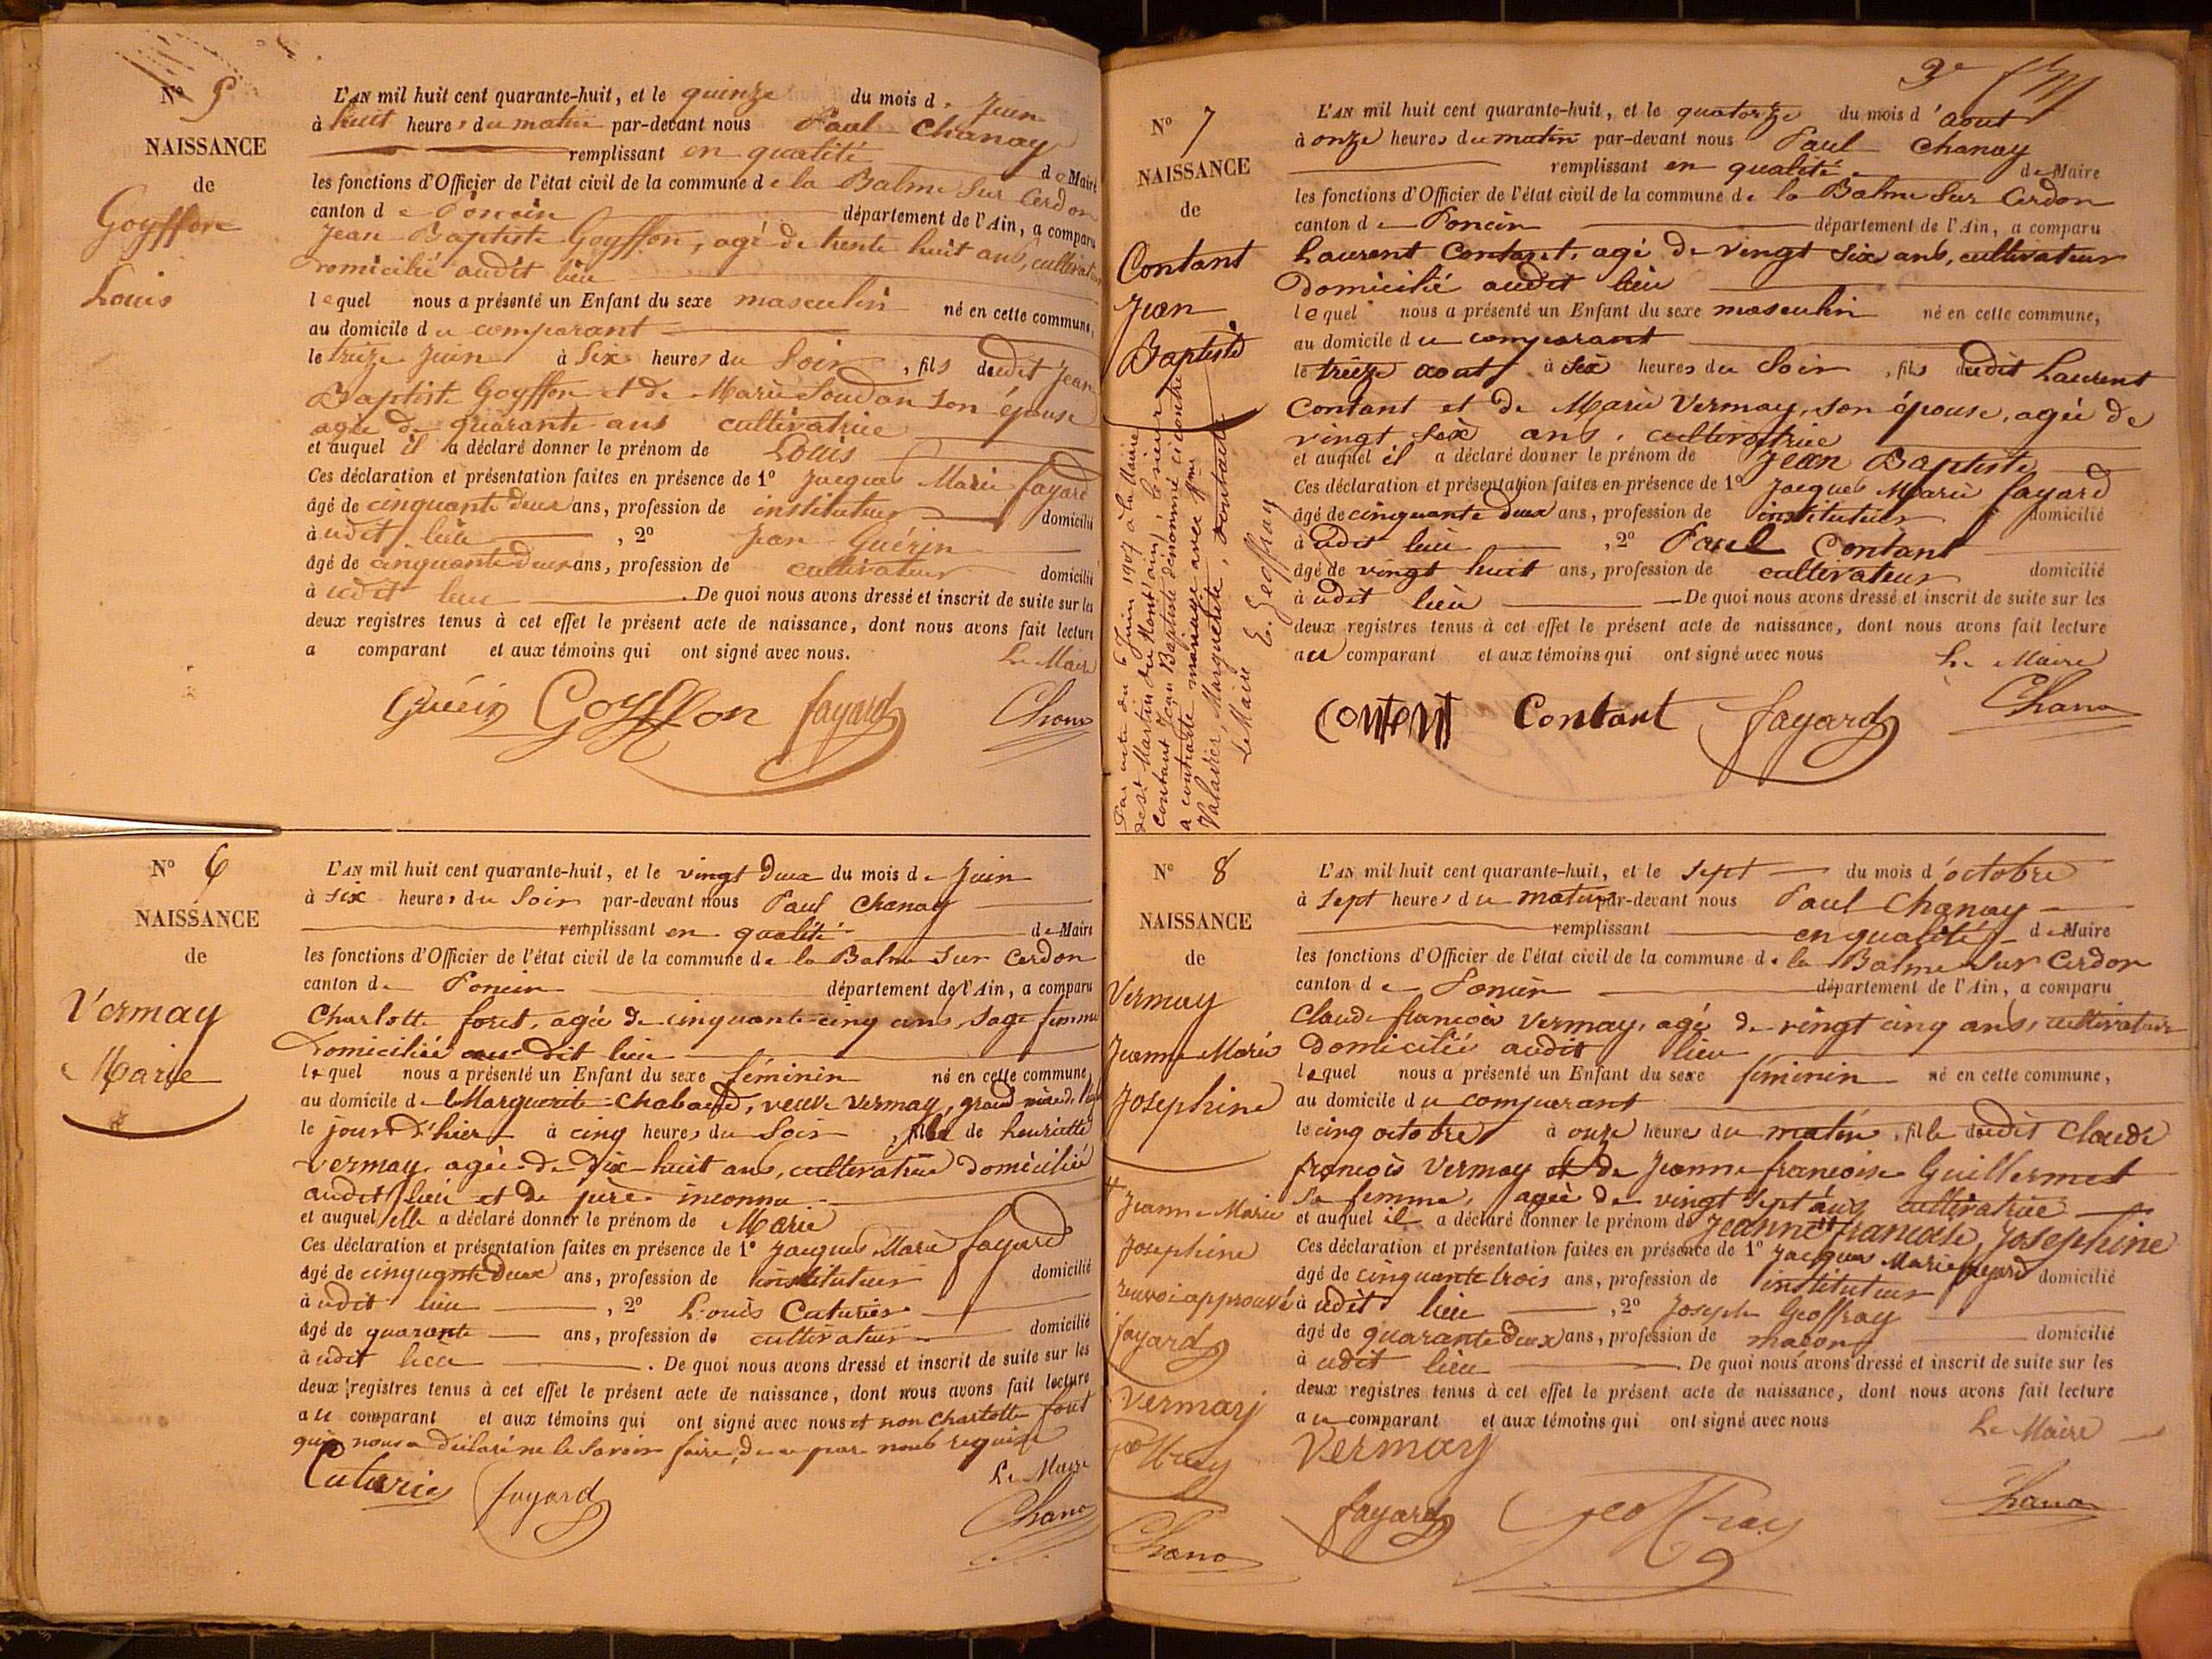 N° 5
NAISSANCE
de
Goyffon
Louis
L'AN mil huit cent quarante-huit, et le quinze du mois de Juin
à huit heures du matin par-devant nous Paul Chanay
remplissant en qualité de Maire
les fonctions d'Officier de l'état civil de la commune de la Balme Sur Cerdon
canton de Poncin département de l'Ain, a comparu
Jean Baptiste Goyffon, agé de trente huit ans, cultivateur
domicilié audit lieu
lequel nous a présenté un Enfant du sexe masculin né en cette commune,
au domicile du comparant
le treize Juin à Six heures du Soir, fils dudit Jean
Baptiste Goyffon et de Marie Soudan son épouse
agée de quarante ans cultivatrice
et auquel il a déclaré donner le prénom de Louis
Ces déclaration et présentation faites en présence de 1° Jacques Marie fayard
âgé de cinquante deux ans, profession de instituteur domicilié
audit lieu, 2° Jean Guérin
âgé de cinquante deux ans, profession de cultivateur domicilié
à udit lieu. De quoi nous avons dressé et inscrit de suite sur les
deux registres tenus à cet effet le présent acte de naissance, dont nous avons fait lecture
a comparant et aux témoins qui ont signé avec nous.
Le Maire
Guérin Goyffon fayard Chana
N° 6
NAISSANCE
de
Vermay
Marie
L'AN mil huit cent quarante-huit, et le vingt Deux du mois de Juin
à six heures du Soir par-devant nous Paul Chanay
remplissant en qualité de Maire
les fonctions d'Officier de l'état civil de la commune de la Balme Sur Cerdon
canton de Poncin département de l'Ain, a comparu
Charlotte foret, agée de cinquante cinq ans, Sage femme
Domiciliée au dit lieu
lequel nous a présenté un Enfant du sexe féminin né en cette commune,
au domicile de Marguerite Chabaud, veuve Vermay, grand mère
le jour d'hier à cinq heures du Soir, fille de henriette
Vermay agée de Dix-huit ans, cultivatrice Domiciliée
audit lieu et de père inconnu
et auquel elle a déclaré donner le prénom de Marie
Ces déclaration et présentation faites en présence de 1° Jacques Marie fayard
âgé de cinquante Deux ans, profession de instituteur domicilié
à udit lieu, 2° Louis Caturier
âgé de quarante ans, profession de cultivateur domicilié
à udit lieu. De quoi nous avons dressé et inscrit de suite sur les
deux registres tenus à cet effet le présent acte de naissance, dont nous avons fait lecture
au comparant et aux témoins qui ont signé avec nous et non Charlotte foret
qui nous a déclaré ne le Savoir faire, de ce par nous requise
Le Maire
Caturier fayard Chana
3e
N° 7
NAISSANCE
de
Contant
Jean
Baptiste
Par acte du 6 Juin 1907 à la Mairie
de St Martin du Mont (ain), le sieur
Contant Jean Baptiste dénommé ci contre
a contracté mariage avec
Valavier, Marguerite,
Le Maire E. Geoffray
L'AN mil huit cent quarante-huit, et le quatorze du mois d'aout
à onze heures du matin par-devant nous Paul Chanay
remplissant en qualité de Maire
les fonctions d'Officier de l'état civil de la commune de la Balme Sur Cerdon
canton de Poncin département de l'Ain, a comparu
Laurent Contant, agé de vingt Six ans, cultivateur
Domicilié audit lieu
lequel nous a présenté un Enfant du sexe masculin né en cette commune,
au domicile du comparant
le treize aout à six heures du Soir, fils dudit Laurent
Contant et de Marie Vermay, son épouse, agée de
vingt Six ans, cultivatrice
et auquel il a déclaré donner le prénom de Jean Baptiste
Ces déclaration et présentation faites en présence de 1° Jacques Marie fayard
âgé de cinquante deux ans, profession de instituteur domicilié
à udit lieu, 2° Paul Contant
âgé de vingt huit ans, profession de cultivateur domicilié
à udit lieu. De quoi nous avons dressé et inscrit de suite sur les
deux registres tenus à cet effet le présent acte de naissance, dont nous avons fait lecture
au comparant et aux témoins qui ont signé avec nous
Le Maire
Contant Contant fayard Chana
N° 8
NAISSANCE
de
Vermay
Jeanne Marie
Josephine
Jeanne Marie
Josephine
renvoi approuvé
fayard
Vermay
Geoffray
Chana
L'AN mil huit cent quarante-huit, et le Sept du mois d'octobre
à Sept heures du matin par-devant nous Paul Chanay
remplissant en qualité de Maire
les fonctions d'Officier de l'état civil de la commune de la Balme Sur Cerdon
canton de Poncin département de l'Ain, a comparu
Claude françois Vermay, agé de vingt cinq ans, cultivateur
Domicilié audit lieu
lequel nous a présenté un Enfant du sexe féminin né en cette commune,
au domicile du comparant
le cinq octobre à onze heures du matin, fille dudit Claude
françois Vermay et de Jeanne françoise Guillermet
Sa femme, agée de vingt Sept ans cultivatrice
et auquel il a déclaré donner le prénom de Jeanne francoise Josephine
Ces déclaration et présentation faites en présence de 1° Jacques Marie fayard
âgé de cinquante trois ans, profession de instituteur domicilié
à udit lieu, 2° Joseph Geoffray
âgé de quarante Deux ans, profession de maçon domicilié
à udit lieu. De quoi nous avons dressé et inscrit de suite sur les
deux registres tenus à cet effet le présent acte de naissance, dont nous avons fait lecture
au comparant et aux témoins qui ont signé avec nous
Le Maire
Vermay
fayard Geoffray Chana